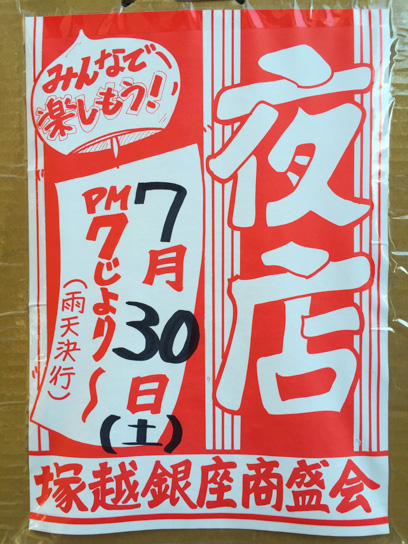 夜店
みんなで
楽しもう!
7月30日(土)
PM7じより〜
(雨天決行)
塚越銀座商盛会